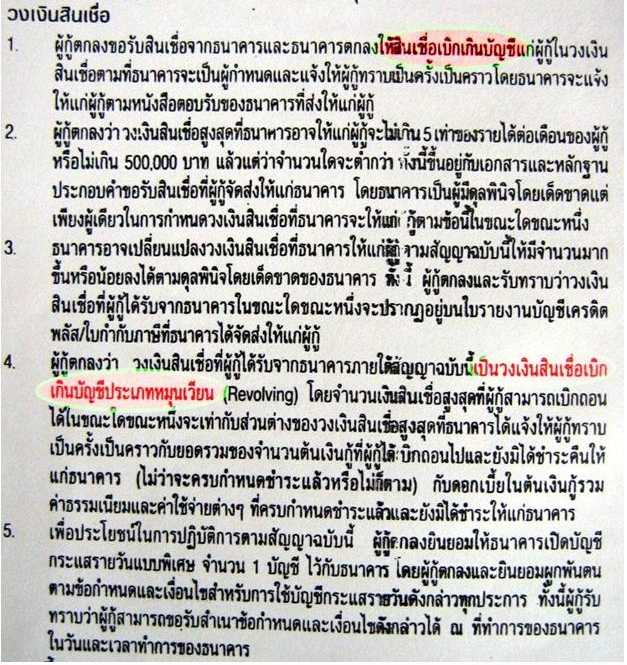 วงเงินสินเชื่อ
1. ผู้กู้ตกลงขอรับสินเชื่อจากธนาคารและธนาคารตกลงให้สินเชื่อเบิกเกินบัญชีแก่ผู้กู้ในวงเงิน
สินเชื่อตามที่ธนาคารจะเป็นผู้กำหนดและแจ้งให้ผู้กู้ทราบเป็นครั้งเป็นคราวโดยธนาคารจะแจ้ง
ให้แก่ผู้กู้ตามหนังสือตอบรับของธนาคารที่ส่งให้แก่ผู้กู้
2. ผู้กู้ตกลงว่า วงเงินสินเชื่อสูงสุดที่ธนาคารอาจให้แก่ผู้กู้จะไม่เกิน 5 เท่าของรายได้ต่อเดือนของผู้กู้
หรือไม่เกิน 500,000 บาท แล้วแต่ว่าจำนวนใดจะต่ำกว่า ทั้งนี้ขึ้นอยู่กับเอกสารและหลักฐาน
ประกอบคำขอรับสินเชื่อที่ผู้กู้จัดส่งให้แก่ธนาคาร โดยธนาคารเป็นผู้มีดุลพินิจโดยเด็ดขาดแต่
เพียงผู้เดียวในการกำหนดวงเงินสินเชื่อที่ธนาคารจะให้แก่ผู้กู้ตามข้อนี้ในขณะใดขณะหนึ่ง
3. ธนาคารอาจเปลี่ยนแปลงวงเงินสินเชื่อที่ธนาคารให้แก่ผู้กู้ตามสัญญาฉบับนี้ให้มีจำนวนมาก
ขึ้นหรือน้อยลงได้ตามดุลพินิจโดยเด็ดขาดของธนาคาร ทั้งนี้ ผู้กู้ตกลงและรับทราบว่าวงเงิน
สินเชื่อที่ผู้กู้ได้รับจากธนาคารในขณะใดขณะหนึ่งจะปรากฏอยู่บนใบรายงานบัญชีเครดิต
พลัส/ใบกำกับภาษีที่ธนาคารได้จัดส่งให้แก่ผู้กู้
4. ผู้กู้ตกลงว่า วงเงินสินเชื่อที่ผู้กู้ได้รับจากธนาคารภายใต้สัญญาฉบับนี้เป็นวงเงินสินเชื่อเบิก
เกินบัญชีประเภทหมุนเวียน (Revolving) โดยจำนวนเงินสินเชื่อสูงสุดที่ผู้กู้สามารถเบิกถอน
ได้ในขณะใดขณะหนึ่งจะเท่ากับส่วนต่างของวงเงินสินเชื่อสูงสุดที่ธนาคารได้แจ้งให้ผู้กู้ทราบ
เป็นครั้งเป็นคราวกับยอดรวมของจำนวนต้นเงินกู้ที่ผู้กู้ได้เบิกถอนไปและยังมิได้ชำระคืนให้
แก่ธนาคาร (ไม่ว่าจะครบกำหนดชำระแล้วหรือไม่ก็ตาม) กับดอกเบี้ยในต้นเงินกู้รวม
ค่าธรรมเนียมและค่าใช้จ่ายต่างๆ ที่ครบกำหนดชำระแล้วและยังมิได้ชำระให้แก่ธนาคาร
5. เพื่อประโยชน์ในการปฏิบัติการตามสัญญาฉบับนี้ ผู้กู้ตกลงยินยอมให้ธนาคารเปิดบัญชี
กระแสรายวันแบบพิเศษ จำนวน 1 บัญชี ไว้กับธนาคาร โดยผู้กู้ตกลงและยินยอมผูกพันตน
ตามข้อกำหนดและเงื่อนไขสำหรับการใช้บัญชีกระแสรายวันดังกล่าวทุกประการ ทั้งนี้ผู้กู้รับ
ทราบว่าผู้กู้สามารถขอรับสำเนาข้อกำหนดและเงื่อนไขดังกล่าวได้ ณ ที่ทำการของธนาคาร
ในวันและเวลาทำการของธนาคาร